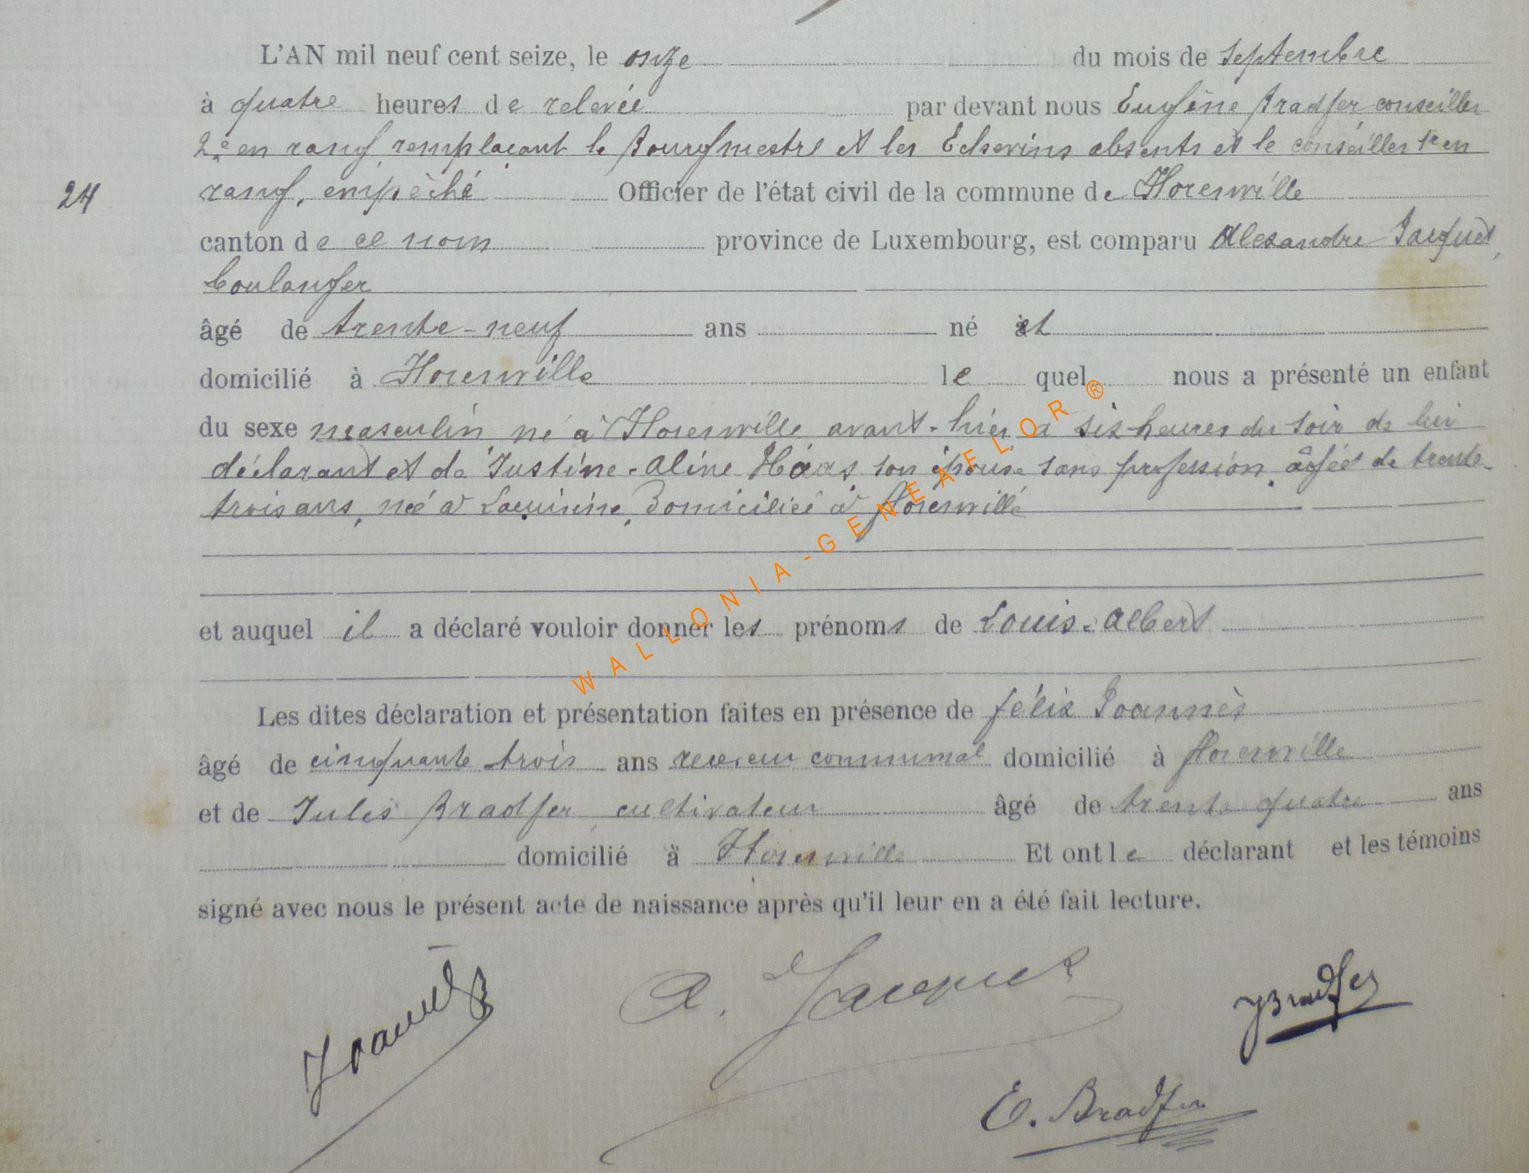 L'AN mil neuf cent seize, le onze du mois de septembre
à quatre heures de relevée par devant nous Eugène Bradfer conseiller
2e en rang, remplaçant le Bourgmestre et les Echevins absents et le conseiller 1er en
24 rang, empêché Officier de l'état civil de la commune de Florenville
canton de ce nom province de Luxembourg, est comparu Alexandre Jacquet,
boulanger
âgé de trente-neuf ans né et
domicilié à Florenville lequel nous a présenté un enfant
du sexe masculin, né à Florenville, avant-hier à six heures du soir de lui
déclarant et de Justine-Aline Haas son épouse sans profession, âgée de trente-
trois ans, née à Lacuisine, domiciliée à Florenville
et auquel il a déclaré vouloir donner les prénoms de Louis-Albert
Les dites déclaration et présentation faites en présence de Félix Joannès
âgé de cinquante trois ans receveur communal domicilié à Florenville
et de Jules Bradfer, cultivateur âgé de trente quatre ans
domicilié à Florenville Et ont le déclarant et les témoins
signé avec nous le présent acte de naissance après qu'il leur en a été fait lecture.
Joannès A. Jacquet J Bradfer
E. Bradfer
WALLONIA-GENEAFLOR®